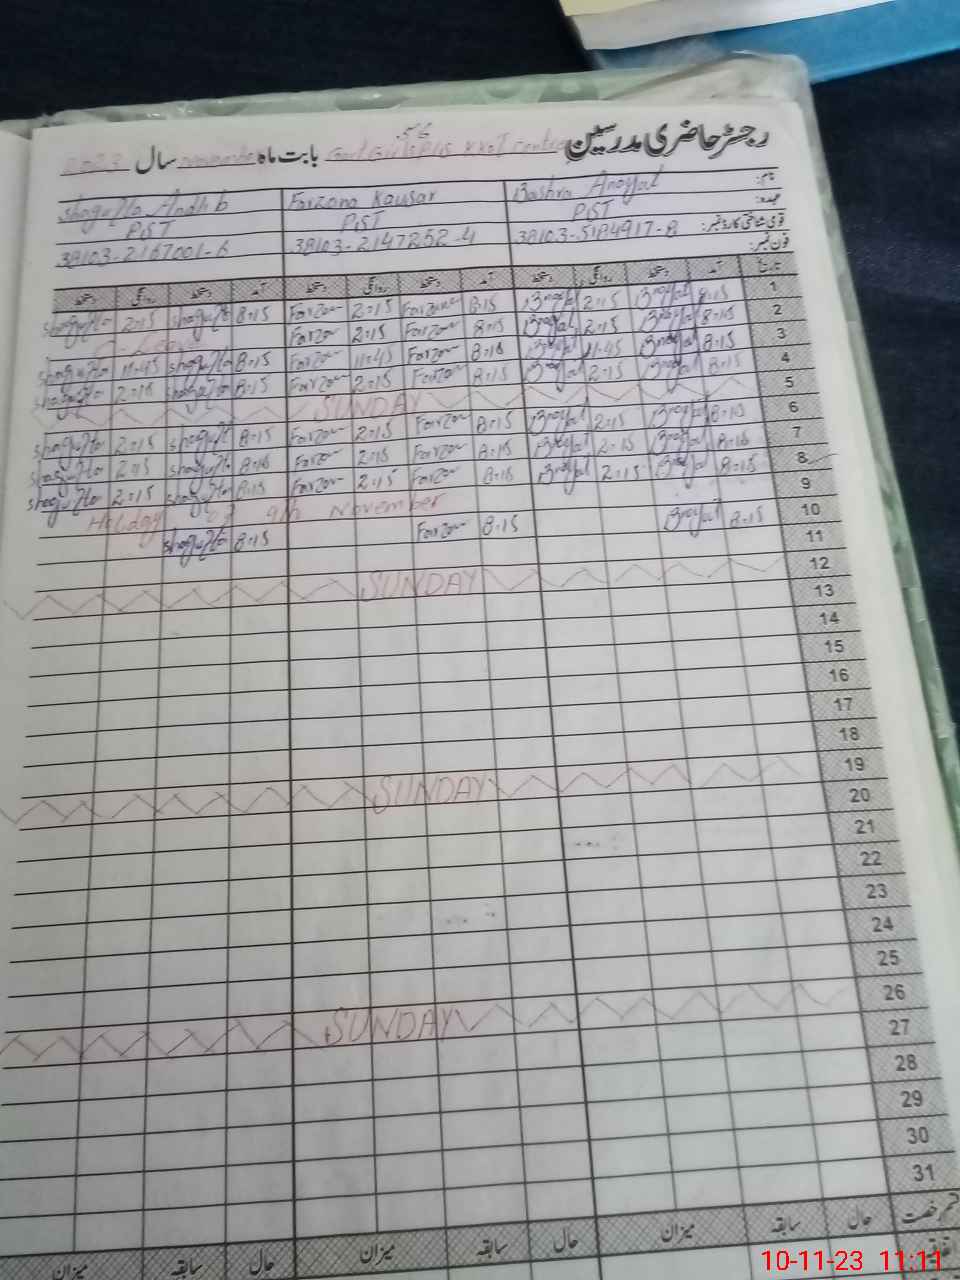 رجسٹر حاضری مدرسین Govt Girls P/S بابت ماہ November سال 2023
نام: Bushra Farzana Kausar Shagufta Andlib
عہدہ: PST PST PST
قومی شناختی کارڈ نمبر: 38103-5184917-8 38103-2147252-4 38103-2167001-6
فون نمبر:
تاریخ آمد دستخط روانگی دستخط آمد دستخط روانگی دستخط آمد دستخط روانگی دستخط
1 8:15 2:15 8:15 Farzana 2:15 Farzan 8:15 Shagufta 2:15 Shagufta
2 8:15 2:15 8:15 Farzan 2:15 Farzan C-Leave
3 8:15 11:45 8:15 Farzan 11:45 Farzan 8:15 Shagufta 11:45 Shagufta
4 8:15 2:15 8:15 Farzan 2:15 Farzan 8:15 Shagufta 2:15 Shagufta
5 SUNDAY
6 8:15 2:15 8:15 Farzan 2:15 Farzan 8:15 Shagufta 2:15 Shagufta
7 8:15 2:15 8:15 Farzan 2:15 Farzan 8:15 Shagufta 2:15 Shagufta
8 8:15 2:15 8:15 Farzan 2:15 Farzan 8:15 Shagufta 2:15 Shagufta
9 Holiday of 9th November
10 8:15 8:15 Farzan 8:15 Shagufta
11
12 SUNDAY
13
14
15
16
17
18
19 SUNDAY
20
21
22
23
24
25
26 SUNDAY
27
28
29
30
31
قسم رخصت حال سابقہ میزان حال سابقہ میزان حال سابقہ میزان
اتفاقیہ
10-11-23 11:11